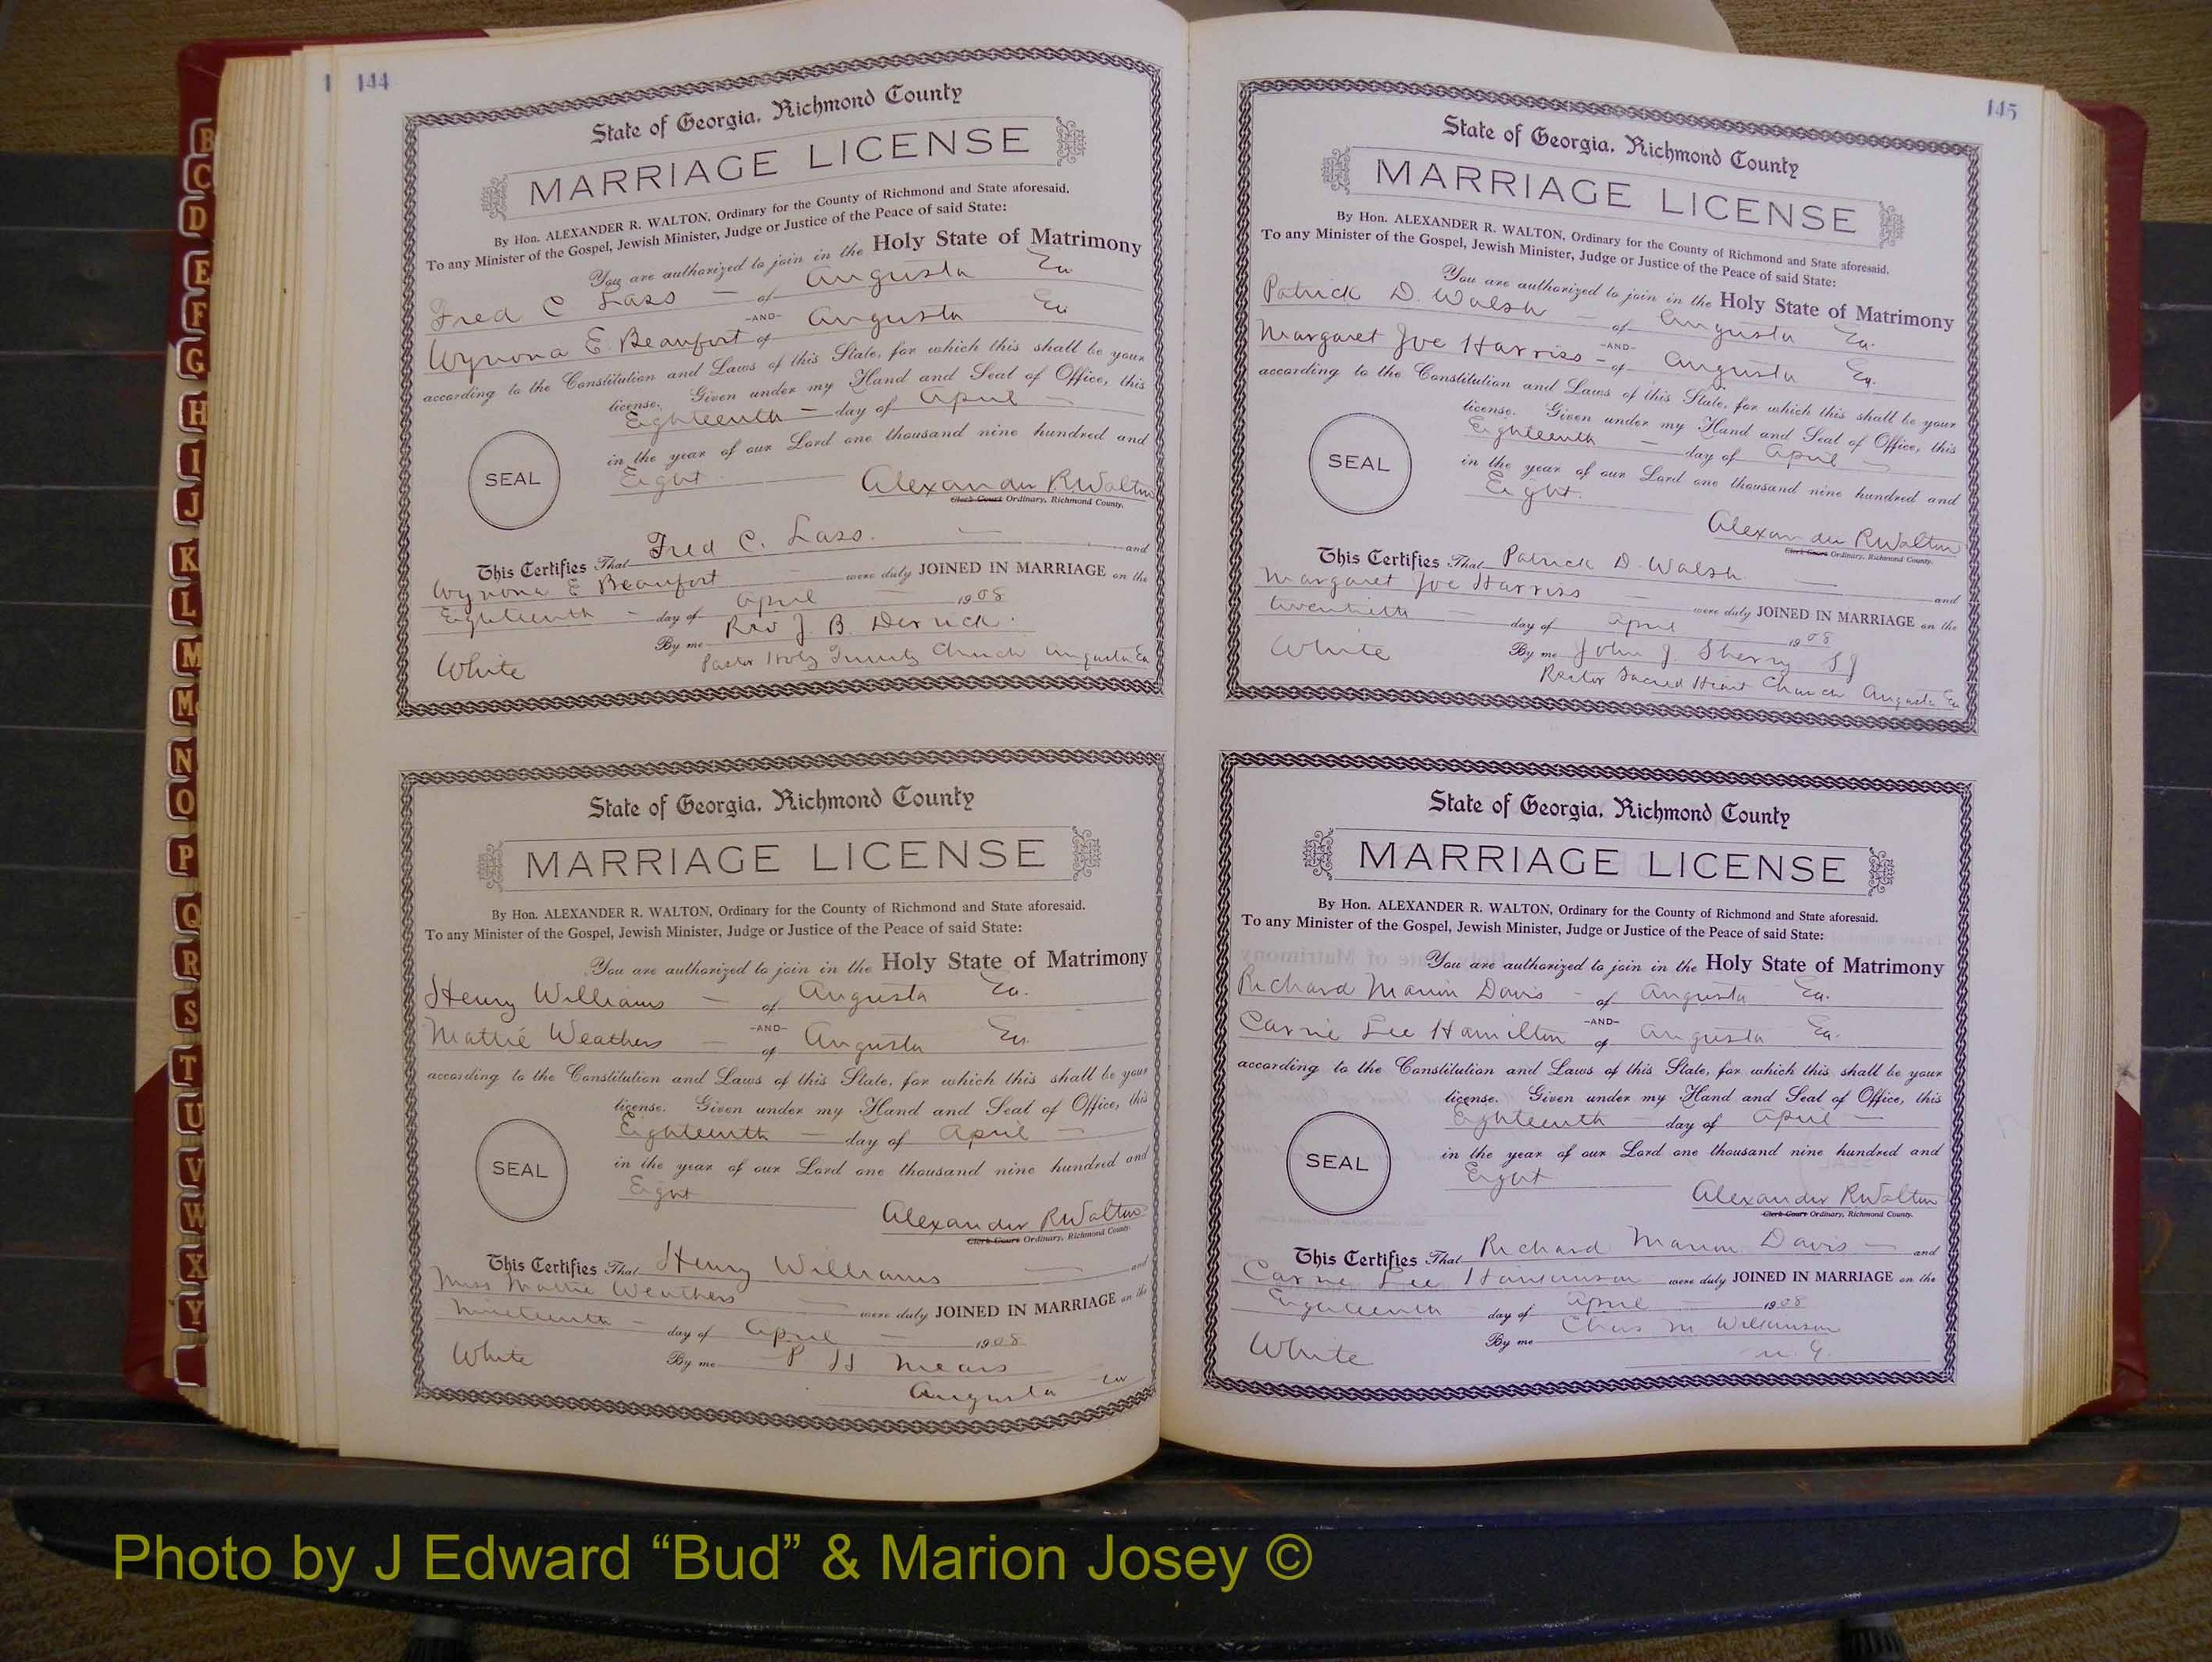 144
State of Georgia, Richmond County
MARRIAGE LICENSE
By Hon. ALEXANDER R. WALTON, Ordinary for the County of Richmond and State aforesaid.
To any Minister of the Gospel, Jewish Minister, Judge or Justice of the Peace of said State:
You are authorized to join in the Holy State of Matrimony
Fred C Lass — of Augusta Ga
-AND-
Wynona E. Beaufort of Augusta Ga
according to the Constitution and Laws of this State, for which this shall be your
license. Given under my Hand and Seal of Office, this
Eighteenth — day of April —
in the year of our Lord one thousand nine hundred and
Eight
SEAL
Alexander R Walton
Clerk Court Ordinary, Richmond County.
This Certifies That Fred C. Lass. — and
Wynona E Beaufort were duly JOINED IN MARRIAGE on the
Eighteenth — day of April 1908
By me Rev J. B. Derrick.
White Pastor Holy Trinity Church Augusta Ga
State of Georgia, Richmond County
MARRIAGE LICENSE
By Hon. ALEXANDER R. WALTON, Ordinary for the County of Richmond and State aforesaid.
To any Minister of the Gospel, Jewish Minister, Judge or Justice of the Peace of said State:
You are authorized to join in the Holy State of Matrimony
Henry Williams — of Augusta Ga.
-AND-
Mattie Weathers — of Augusta Ga.
according to the Constitution and Laws of this State, for which this shall be your
license. Given under my Hand and Seal of Office, this
Eighteenth — day of April —
in the year of our Lord one thousand nine hundred and
Eight
SEAL
Alexander R Walton
Clerk Court Ordinary, Richmond County.
This Certifies That Henry Williams — and
Miss Mattie Weathers — were duly JOINED IN MARRIAGE on the
Nineteenth — day of April — 1908
White By me P H Mears
Augusta Ga
145
State of Georgia, Richmond County
MARRIAGE LICENSE
By Hon. ALEXANDER R. WALTON, Ordinary for the County of Richmond and State aforesaid.
To any Minister of the Gospel, Jewish Minister, Judge or Justice of the Peace of said State:
You are authorized to join in the Holy State of Matrimony
Patrick D. Walsh — of Augusta Ga.
-AND-
Margaret Joe Harriss — of Augusta Ga.
according to the Constitution and Laws of this State, for which this shall be your
license. Given under my Hand and Seal of Office, this
Eighteenth — day of April —
in the year of our Lord one thousand nine hundred and
Eight.
SEAL
Alexander R Walton
Clerk Court Ordinary, Richmond County.
This Certifies That Patrick D. Walsh — and
Margaret Joe Harriss — were duly JOINED IN MARRIAGE on the
twentieth — day of April 1908
White By me John J. Sherry SJ
Rector Sacred Heart Church Augusta Ga
State of Georgia, Richmond County
MARRIAGE LICENSE
By Hon. ALEXANDER R. WALTON, Ordinary for the County of Richmond and State aforesaid.
To any Minister of the Gospel, Jewish Minister, Judge or Justice of the Peace of said State:
You are authorized to join in the Holy State of Matrimony
Richard Marion Davis - of Augusta Ga.
-AND-
Carrie Lee Hamilton of Augusta Ga.
according to the Constitution and Laws of this State, for which this shall be your
license. Given under my Hand and Seal of Office, this
Eighteenth — day of April —
in the year of our Lord one thousand nine hundred and
Eight
SEAL
Alexander R Walton
Clerk Court Ordinary, Richmond County.
This Certifies That Richard Marion Davis — and
Carrie Lee were duly JOINED IN MARRIAGE on the
Eighteenth day of April 1908
White By me Chas M Wilkinson
B
C
D
E
F
G
H
I
J
K
L
M
Mc
N
O
P
Q
R
S
T
U
V
W
X
Y
Photo by J Edward “Bud” & Marion Josey ©